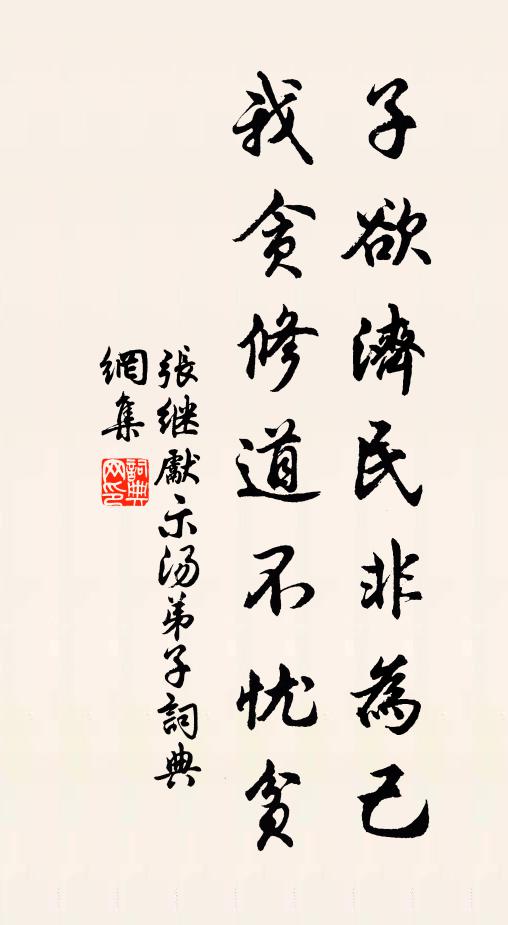 子欲濟民非為己
我貪修道不忧貧
張继獻示汤弟子詞典
網集
詞典
网印